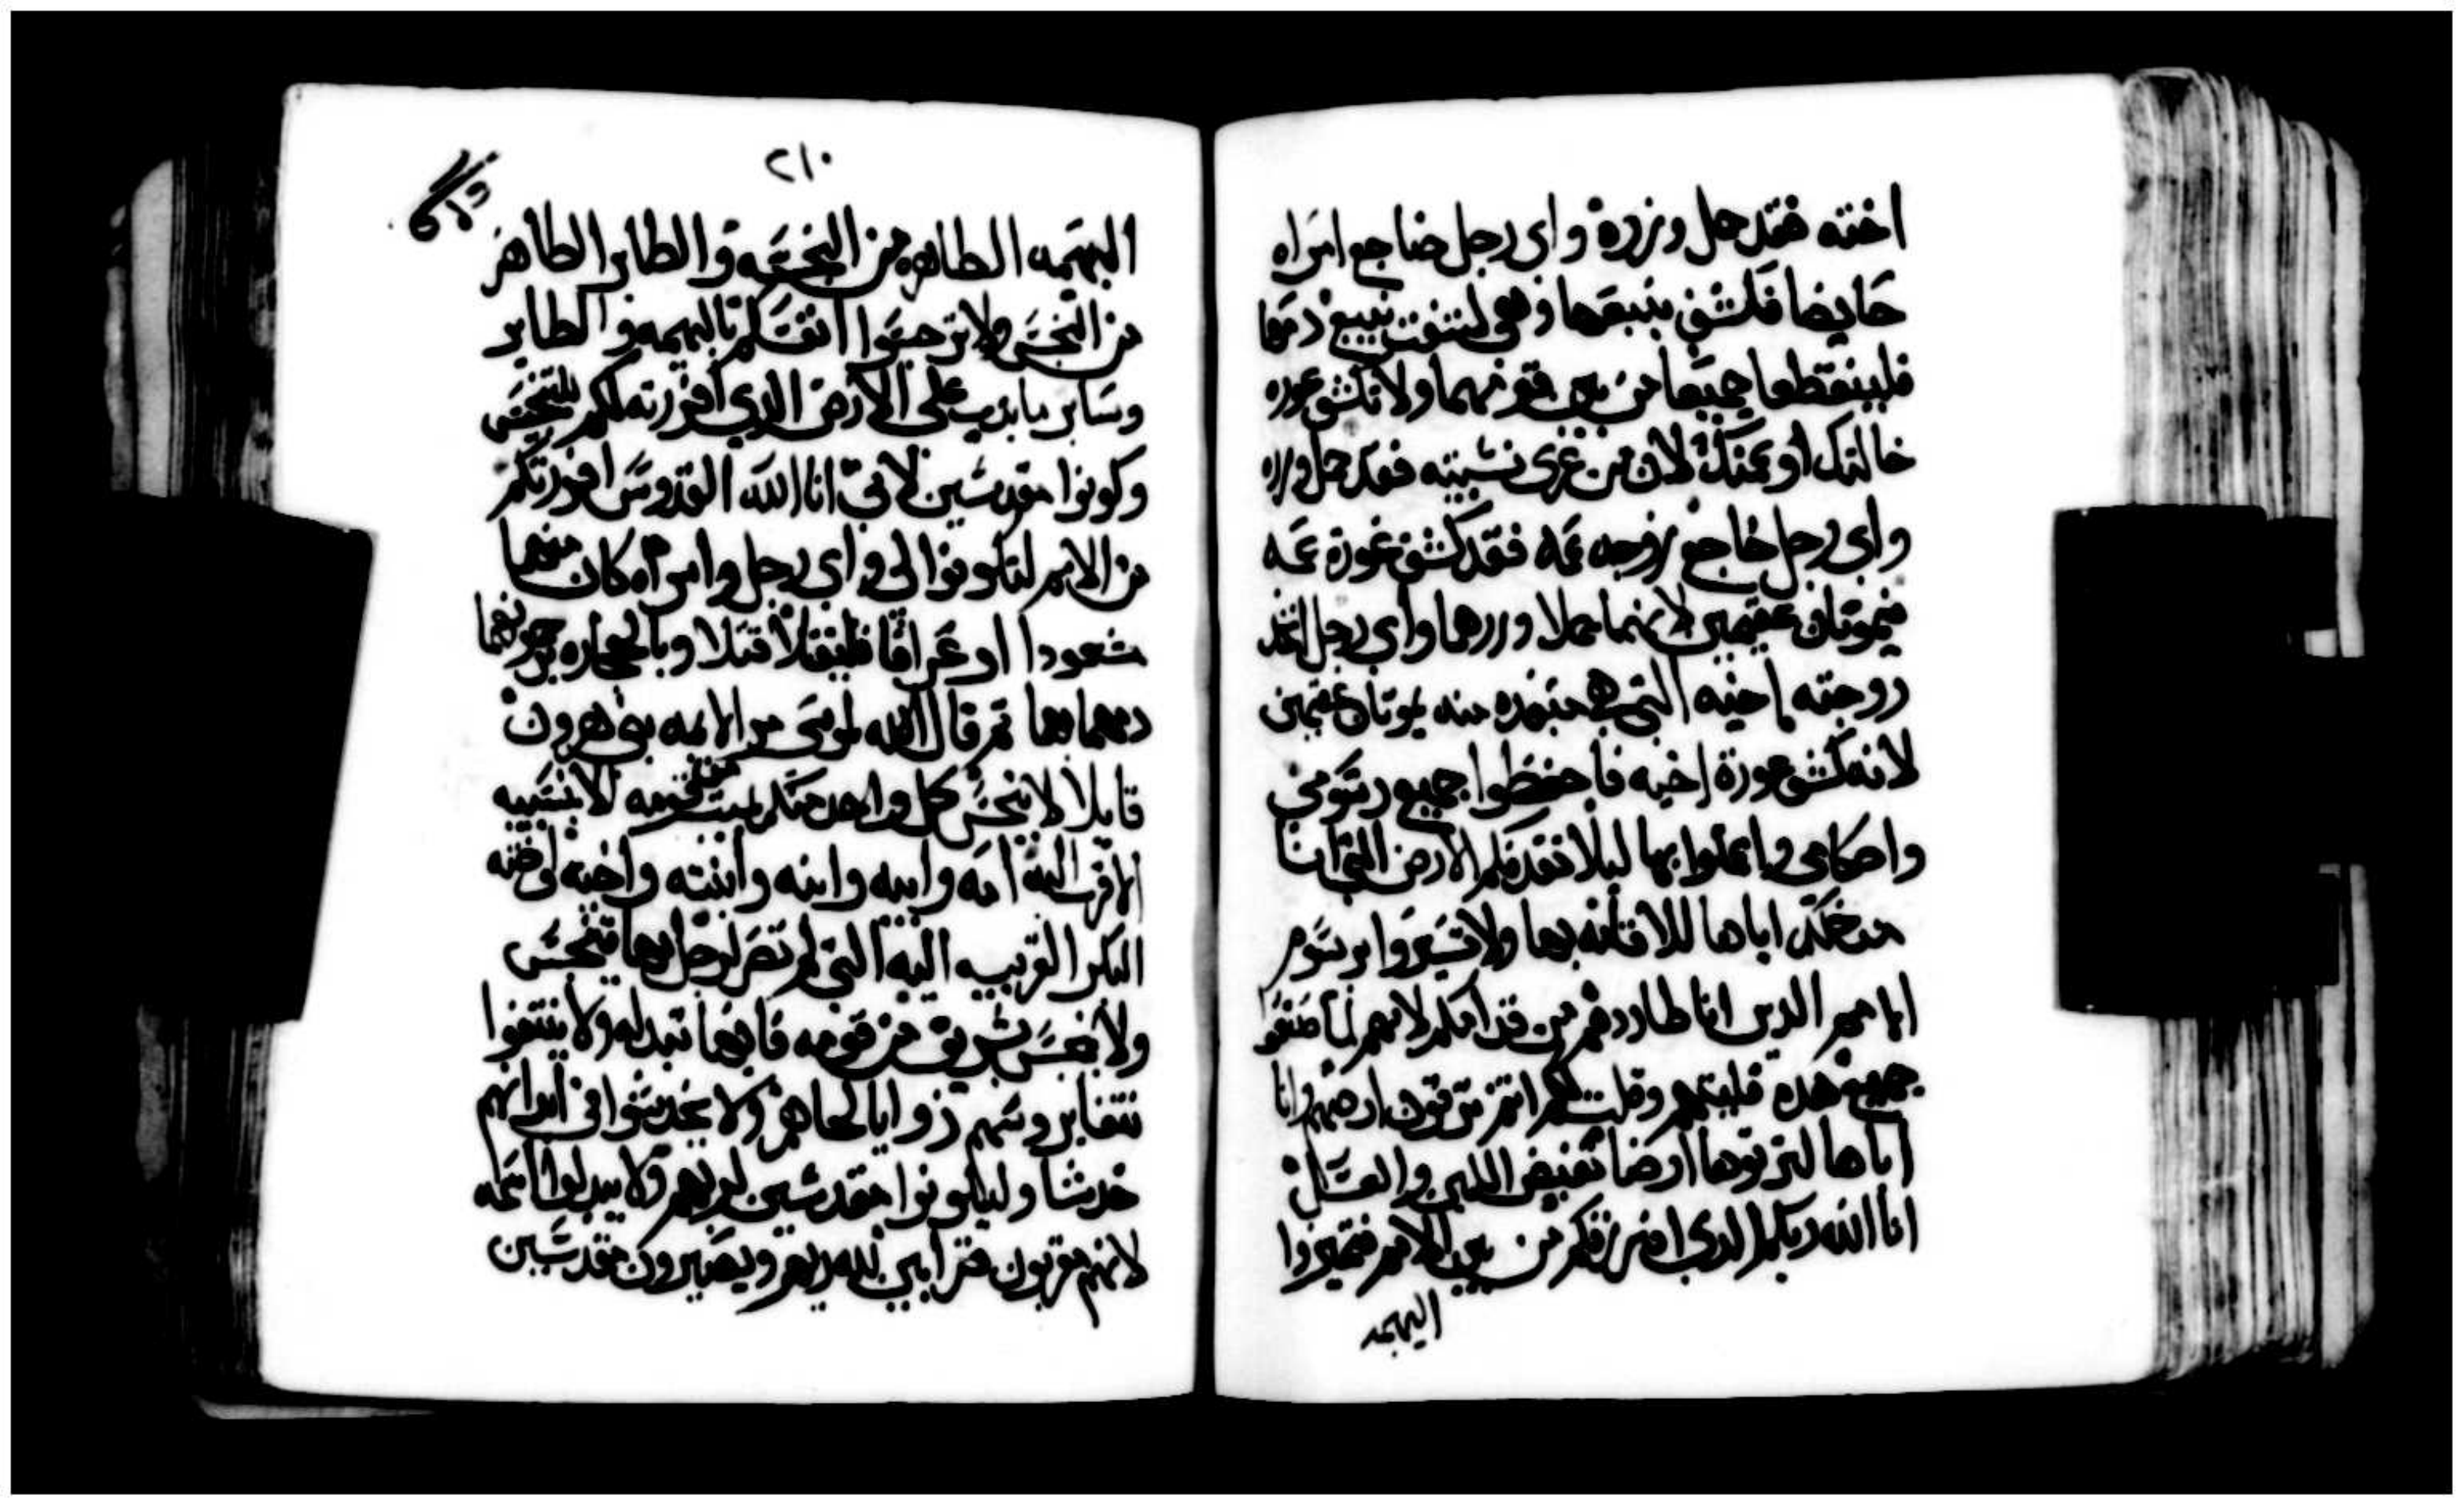 اخته فقد حمل وزره واي رجل ضاجع امراه
حايضا فكشف ينبعها وهي كشفت ينبيع دمها
فلينقطعا جميعا من بين قومهما ولا تكشف عوره
خالتك او عمتك لان من عرى نشيبته فقد حمل وزره
واي رجل ضاجع زوجه عمه فقد كشف عورة عمه
فيموتان عقيمين لانهما حملا وزرهما واي رجل اتخد
زوجته اخيه التي هي مبعده منه يموتان عقيمين
لانه كشف عورة اخيه فاحفظوا جميع رسومي
واحكامي واعملوا بها ليلا تقدفكم الارض التي انا
مدخلكم اياها للاقامه بها ولا تسيروا برسوم
الامم الدين انا طاردهم من قدامكم لانهم لما صنعوا
جميع هده قليتهم وقلت لكم انتم ترتون ارضهم وانا
اياها لترتوها ارضا تفيض اللبن والعسل
انا الله ربكم الدي افرزتكم من بين الامم فميزوا
البهيمه
٢١٠
البهيمه الطاهره من النجسه والطاير الطاهر
من النجس ولا ترجسوا انفسكم بالبهيمه والطاير
وساير ما يدب على الارض الدي افرزته لكم للتنجس
وكونوا مقدسين لاني انا الله القدوس افرزتكم
من الامم لتكونوا لي واي رجل وامراه كان منهما
مشعودا او عرافا فليقتلا قتلا وبالحجاره يرجمونهما
دمهما بهما تم قال الله لموسى مر الايمه بني هرون
قايلا لا ينجس كل واحد منكم لميت من قومه الا لنسيبه
الاقرب اليه امه وابيه وابنه وابنته واخيه واخته
البكر القريبه اليه التي لم تصر لرجل بها يتنجس
ولا ينجس شريف من قومه فانها تبدله ولا ينتفوا
نتفا بروسهم زوايا لحاهم ولا يخدشوا في ابدانهم
خدشا وليكونوا مقدسين لربهم ولا يبدلوا اسمه
لانهم مقربون قرابين الله ربهم ويصيرون مقدسين